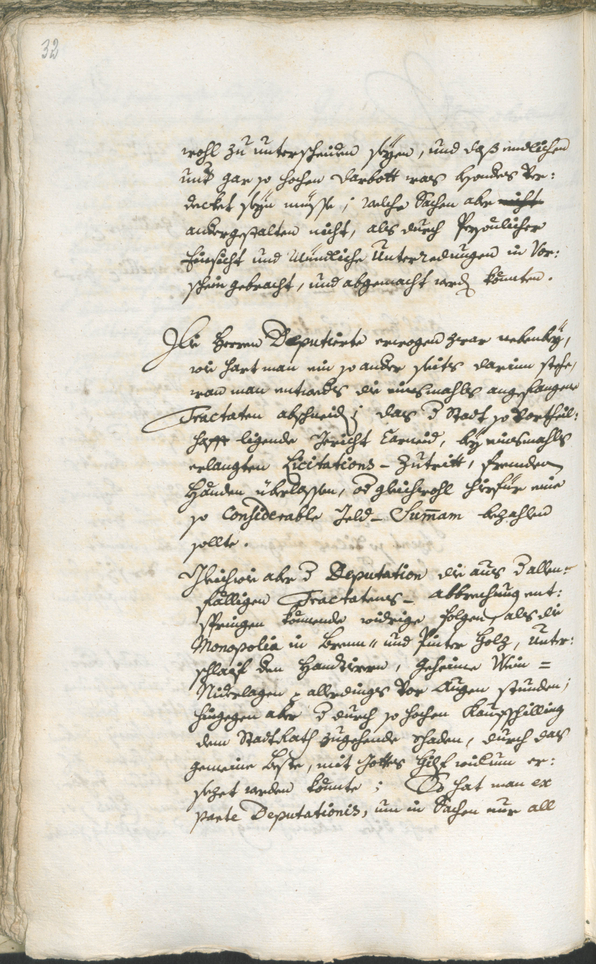 32
wohl zu unterscheiden seyen, und daß endlichen
unter gar so hohen Darbott was hendes Ver:
decket seyn müsse; welche Sachen aber nicht
anderergestalten nicht, als durch Persönlicher
Einsicht und Mündliche Unterredungen in Vor:
schein gebracht, und abgemacht werden könnten.
Die Herren Deputirte erwogen zwar nebenbey,
wie hart man ein so ander seits darinn stehe,
wan man entweders die einsmahls angefangene
Tractaten abschneid; das der Stadt so Vortheil:
hafft ligende Gericht Carneid, bey einsmahls
erlangten Licitations-Zutritt, frembden
Händen überlassen, od gleichwohl hirfür eine
so Considerable Geld-Summam bezahlen
sollte.
Gleichwie aber der Deputation die aus der allen-
fälligen Tractatens-abbrechung ent:
springen könnende widrige folgen, als die
Monopolia in Brenn- und Pinter Holz, Unter:
schlaif den Handirern, geheime Wein=
Niderlagen allerdings Vor Augen stunden;
hingegen aber der durch so hohen Kaufschilling
dem StadtRath zugehende Schaden, durch das
gemeine Beste, mit Gottes Hilf widerum er:
setzet werden könnte; So hat man ex
parte Deputationis, um in Sachen nur all